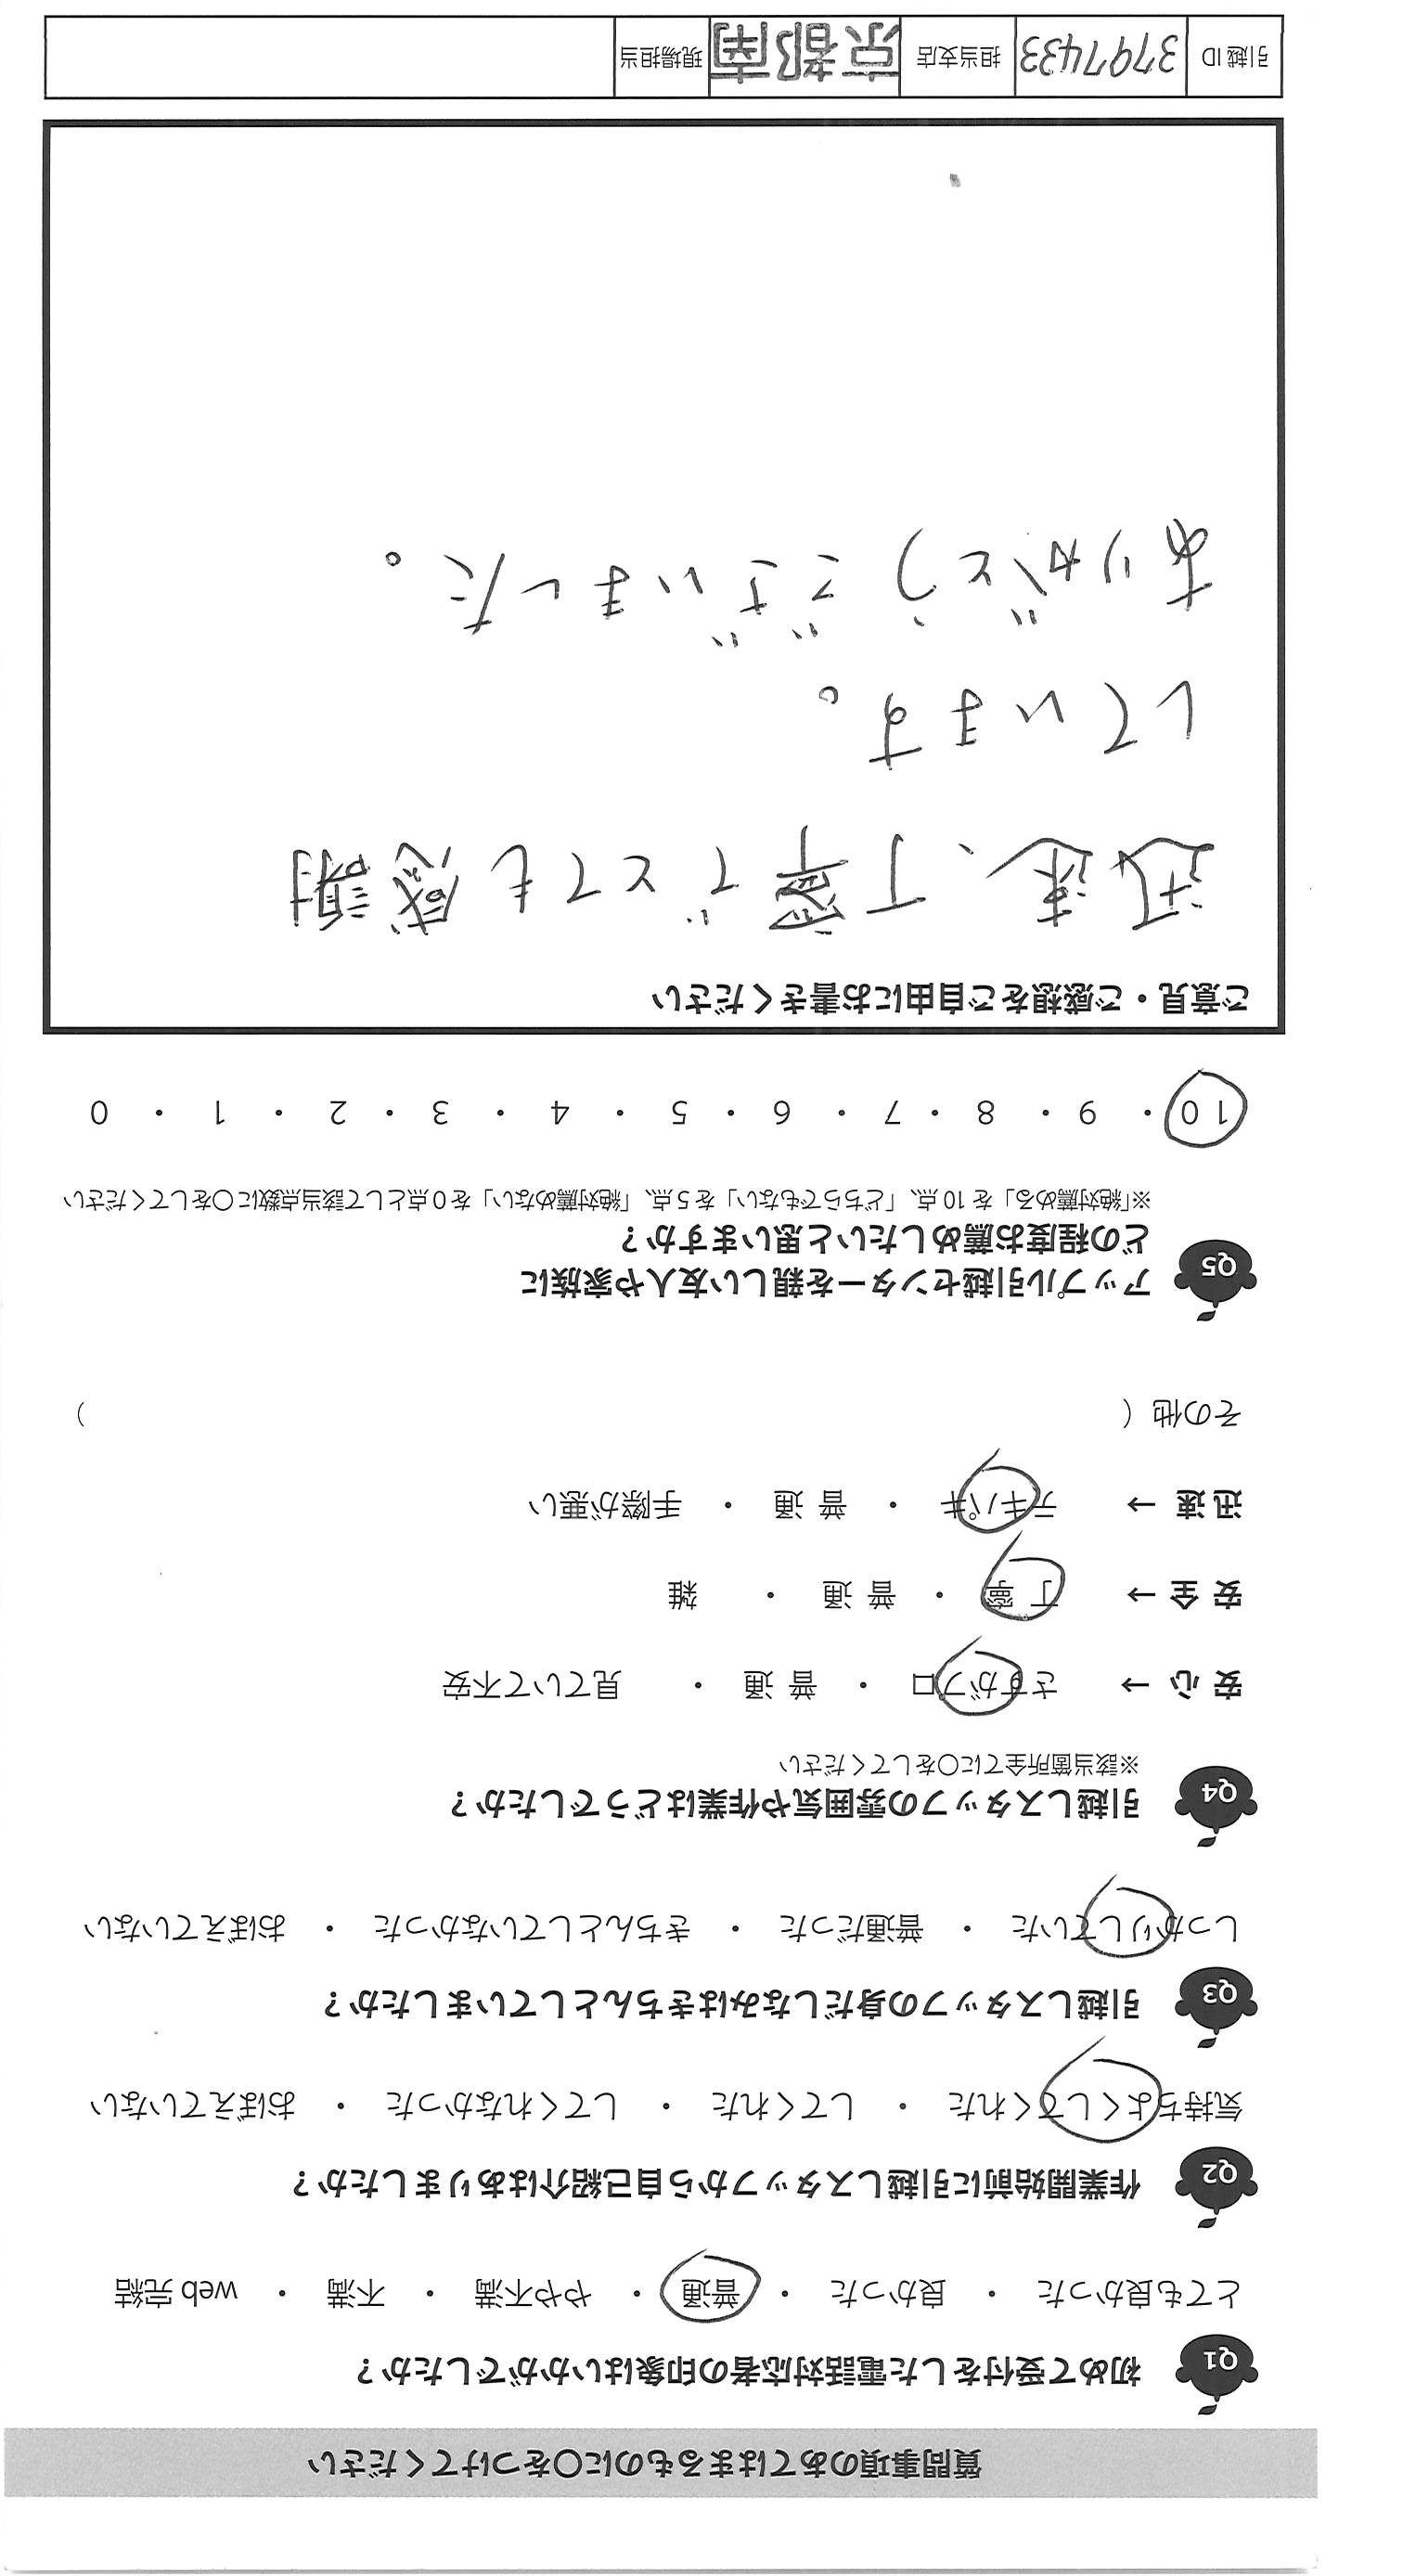 質問事項のあてはまるものに〇をつけてください
Q1 初めて受付をした電話対応者の印象はいかがでしたか？
とても良かった ・ 良かった ・ 普通 ・ やや不満 ・ 不満 ・ web 完結
Q2 作業開始前に引越しスタッフから自己紹介はありましたか？
気持ちよくしてくれた ・ してくれた ・ してくれなかった ・ おぼえていない
Q3 引越しスタッフの身だしなみはきちんとしていましたか？
しっかりしていた ・ 普通だった ・ きちんとしていなかった ・ おぼえていない
Q4 引越しスタッフの雰囲気や作業はどうでしたか？
※該当箇所全てに〇をしてください
安心 → さすがプロ ・ 普通 ・ 見ていて不安
安全 → 丁寧 ・ 普通 ・ 雑
迅速 → テキパキ ・ 普通 ・ 手際が悪い
その他（ ）
Q5 アップル引越センターを親しい友人や家族に
どの程度お薦めしたいと思いますか？
※「絶対薦める」を 10 点、「どちらでもない」を 5 点、「絶対薦めない」を 0 点として該当点数に〇をしてください
10 ・ 9 ・ 8 ・ 7 ・ 6 ・ 5 ・ 4 ・ 3 ・ 2 ・ 1 ・ 0
ご意見・ご感想をご自由にお書きください
迅速、丁寧でとても感謝
しています。
ありがとうございました。
引越 ID 3797433 担当支店 京都南 現場担当